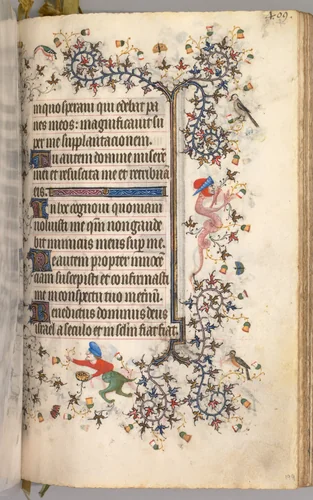 in quo speraui qui edebat pa
nes meos: magnificauit su
per me supplantacionem.
Tu autem domine misere
mei et resuscita me et retribua
eis.
In hoc cognoui quoniam
uoluisti me qm̄ non gaude
bit inimicus meus sup me.
Me autem propter innocē
ciam suscepisti et confirmasti
me in conspectu tuo in etn̄ū.
Benedictus dominus deus
israel a seculo et in sclm fiat fiat.